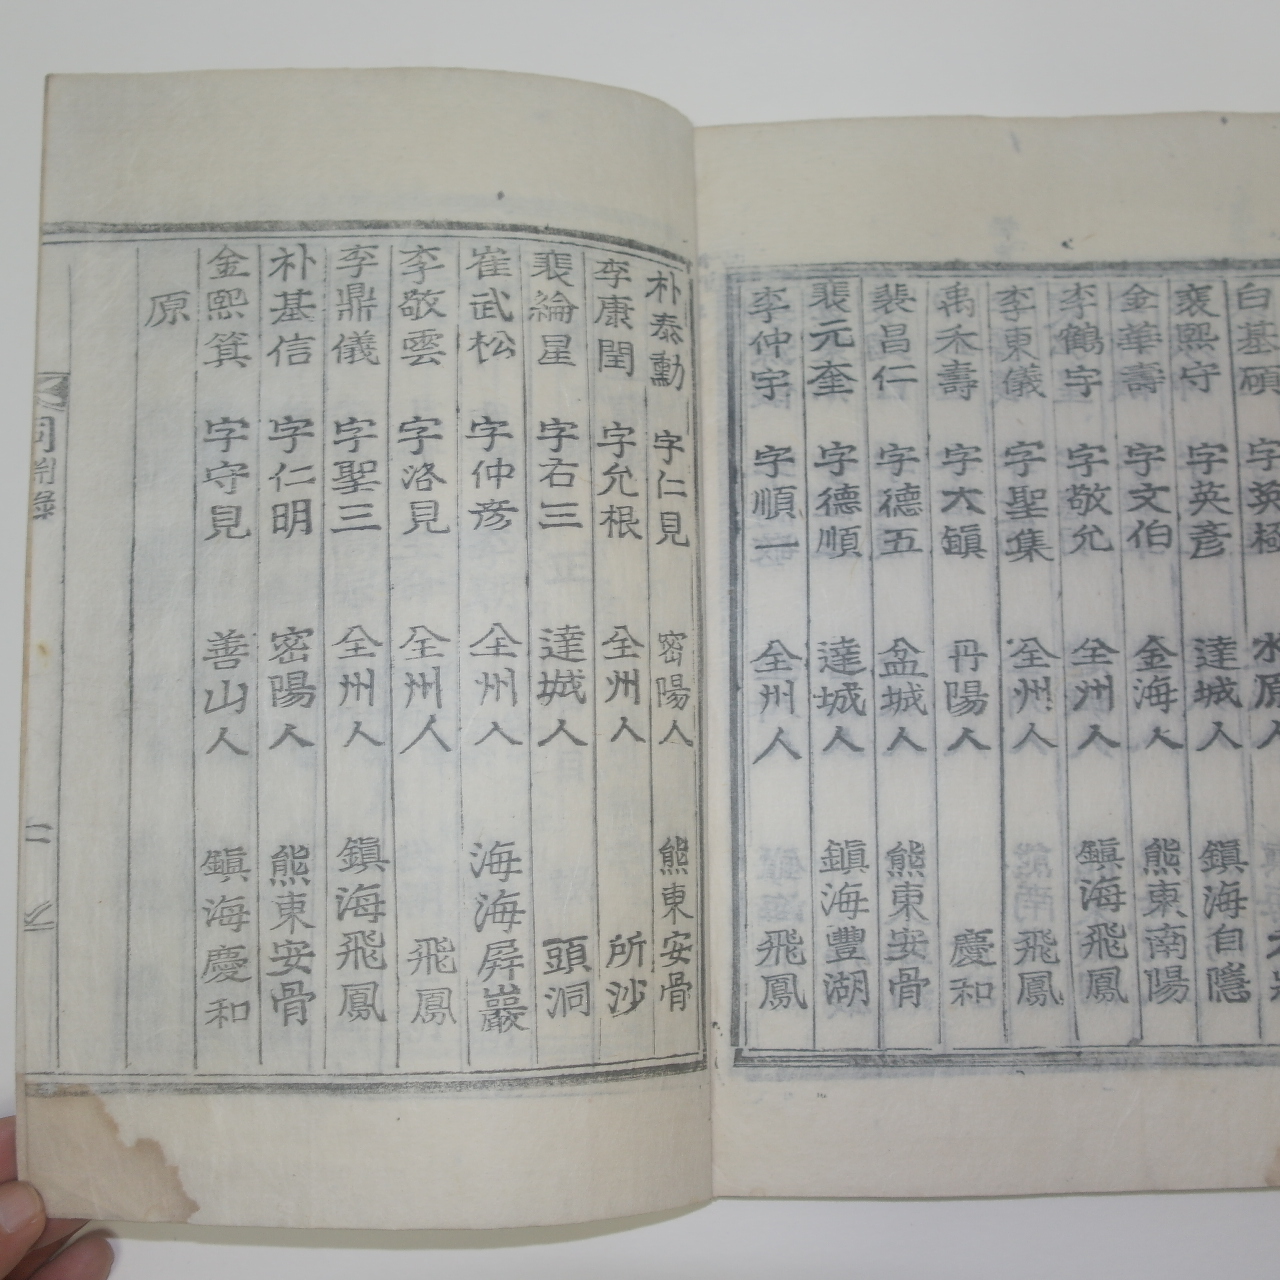 白基碩 字英極 水原人
裵熙守 字英彥 達城人 鎭海自隱
金華壽 字文伯 金海人 熊東南陽
李鶴宇 字敬允 全州人 鎭海飛鳳
李東儀 字聖集 全州人 飛鳳
禹禾壽 字大鎭 丹陽人 慶和
裴昌仁 字德五 盆城人 熊東安骨
裴元奎 字德順 達城人 鎭海豐湖
李仲宇 字順一 全州人 飛鳳
朴泰勳 字仁見 密陽人 熊東安骨
李康閏 字允根 全州人 所沙
裴綸星 字右三 達城人 頭洞
崔武松 字仲彦 全州人 海海屛巖
李敬雲 字洛見 全州人 飛鳳
李鼎儀 字聖三 全州人 鎭海飛鳳
朴基信 字仁明 密陽人 熊東安骨
金熙箕 字守見 善山人 鎭海慶和
原
二